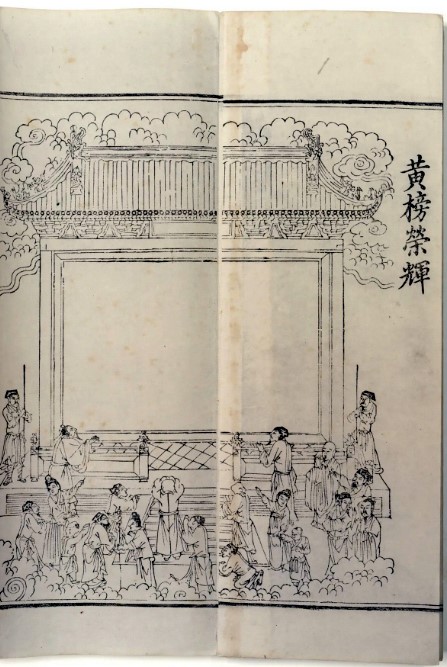 黃榜榮輝